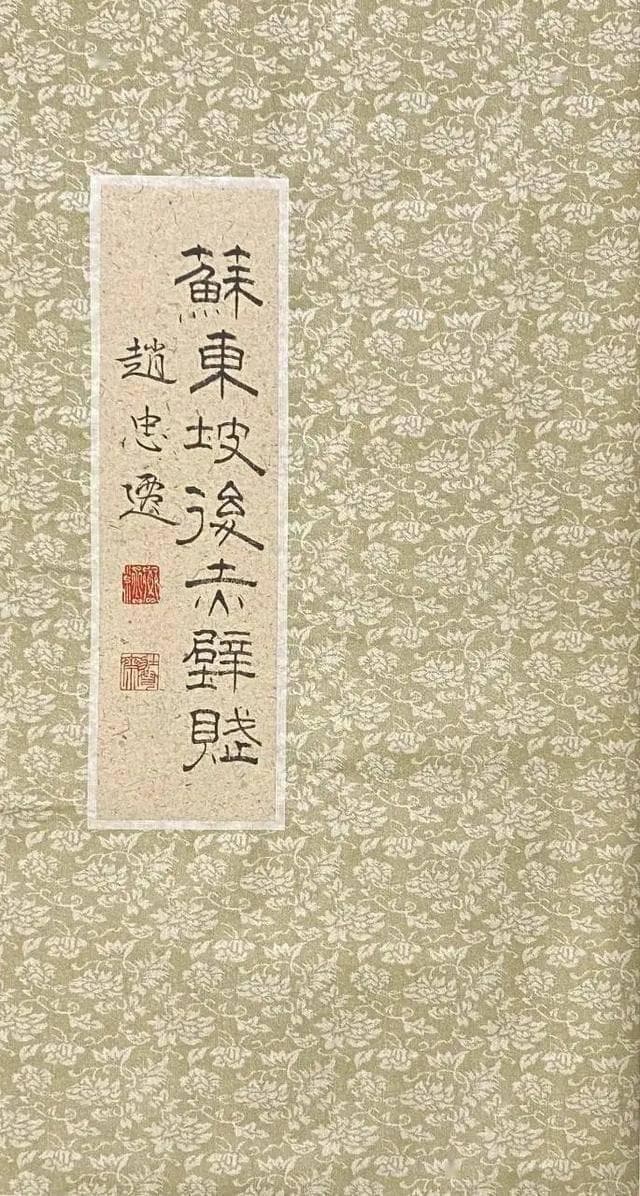 蘇東坡後赤壁賦
趙忠遷